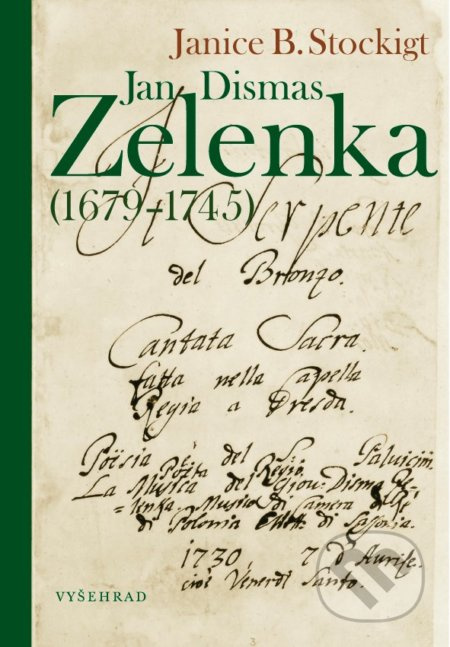 Janice B. Stockigt
Jan Dismas
Zelenka
(1679–1745)
Il Serpente
del Bronzo.
Cantata Sacra.
fatta nella Capella
Regia a Dresda.
Poësia del Sr. Palvicini
Poeta Regio.
La Musica del Giov: Disma Ze-
lenka Musico di Camera del Re
di Polonia Elett: di Sassonia.
1730 7 d'
cioè Venerdi Santo.
VYŠEHRAD
3